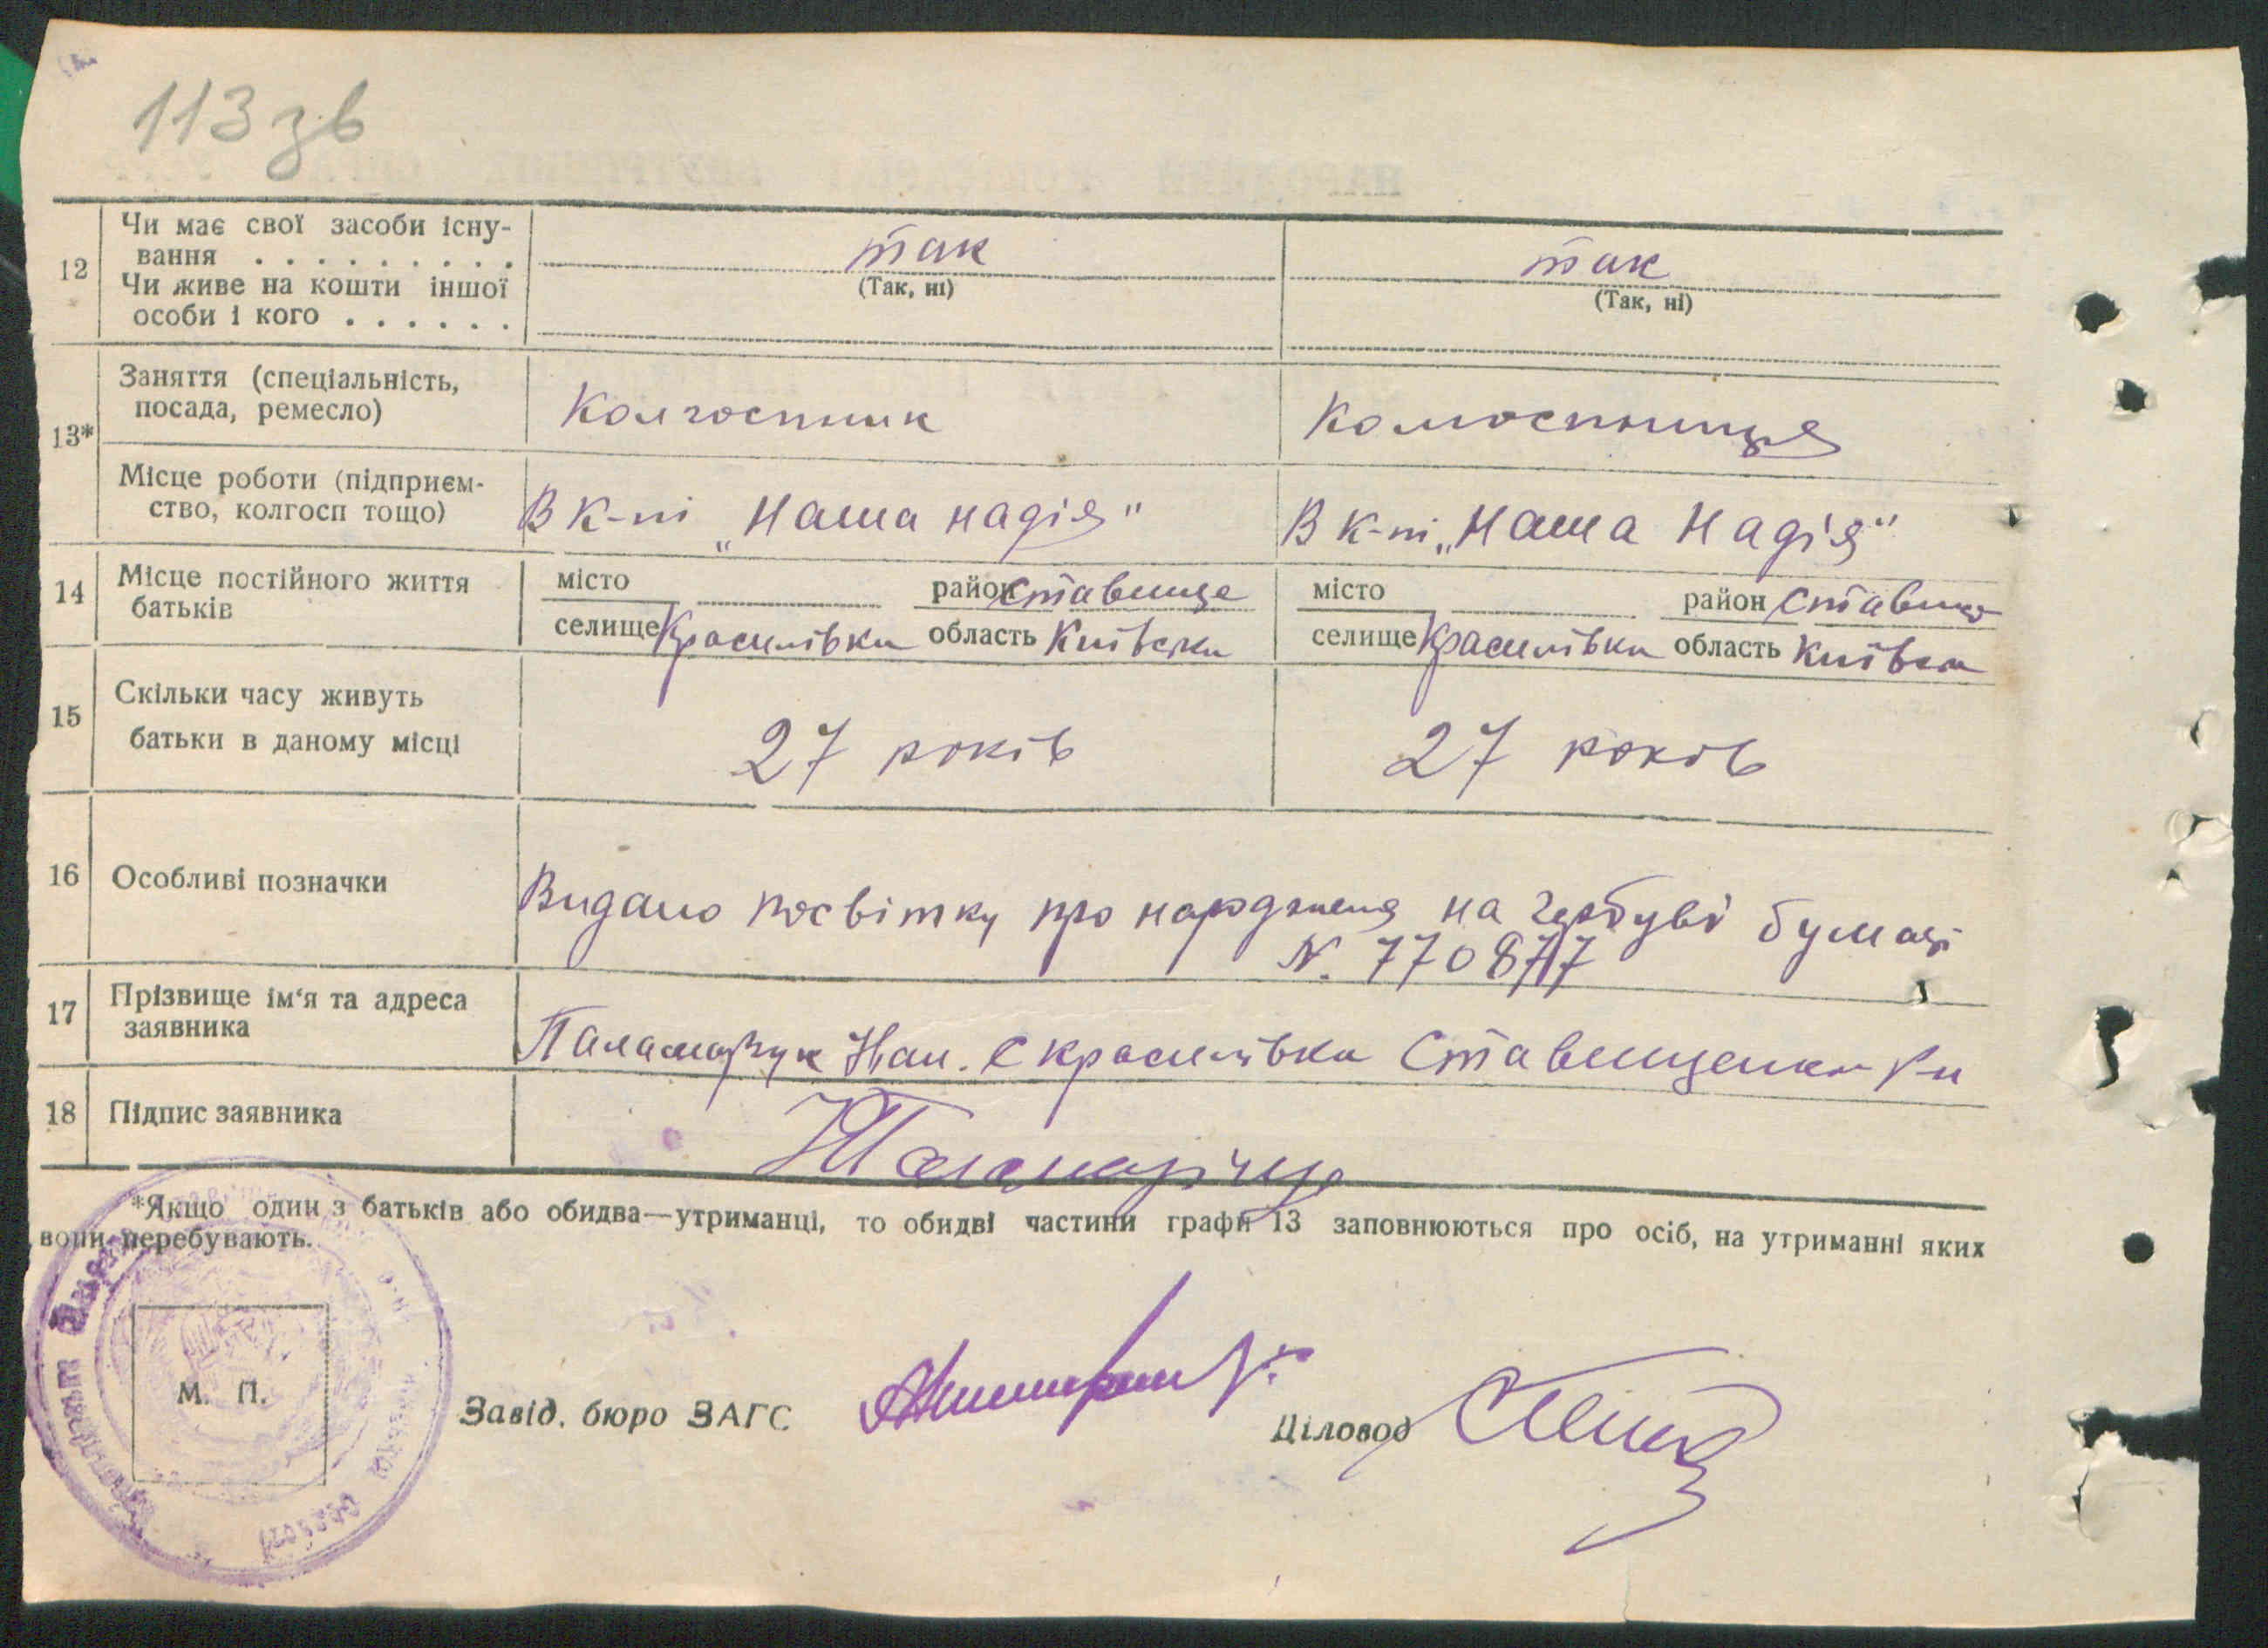 113 зв
12 Чи має свої засоби існу-
вання . . . . . . . . . так так
Чи живе на кошти іншої (Так, ні) (Так, ні)
особи і кого . . . . . .
13* Заняття (спеціальність,
посада, ремесло) Колгоспник Колгоспниця
Місце роботи (підприєм-
ство, колгосп тощо) В к-пі „Наша надія" В к-пі „Наша Надія"
14 Місце постійного життя
батьків
місто район Ставище місто район Ставище
селище Красилівка область Київська селище Красилівка область Київськ
15 Скільки часу живуть
батьки в даному місці 27 років 27 років
16 Особливі позначки Видано посвітку про народження на гербуві бумазі
№. 770877
17 Прізвище ім'я та адреса
заявника Паламарчук Іван. с Красилівка Ставищенск Р-н
18 Підпис заявника
*Якщо один з батьків або обидва—утриманці, то обидві частини графи 13 заповнюються про осіб, на утриманні яких
вони перебувають.
М. П.
Завід. бюро ЗАГС Діловод